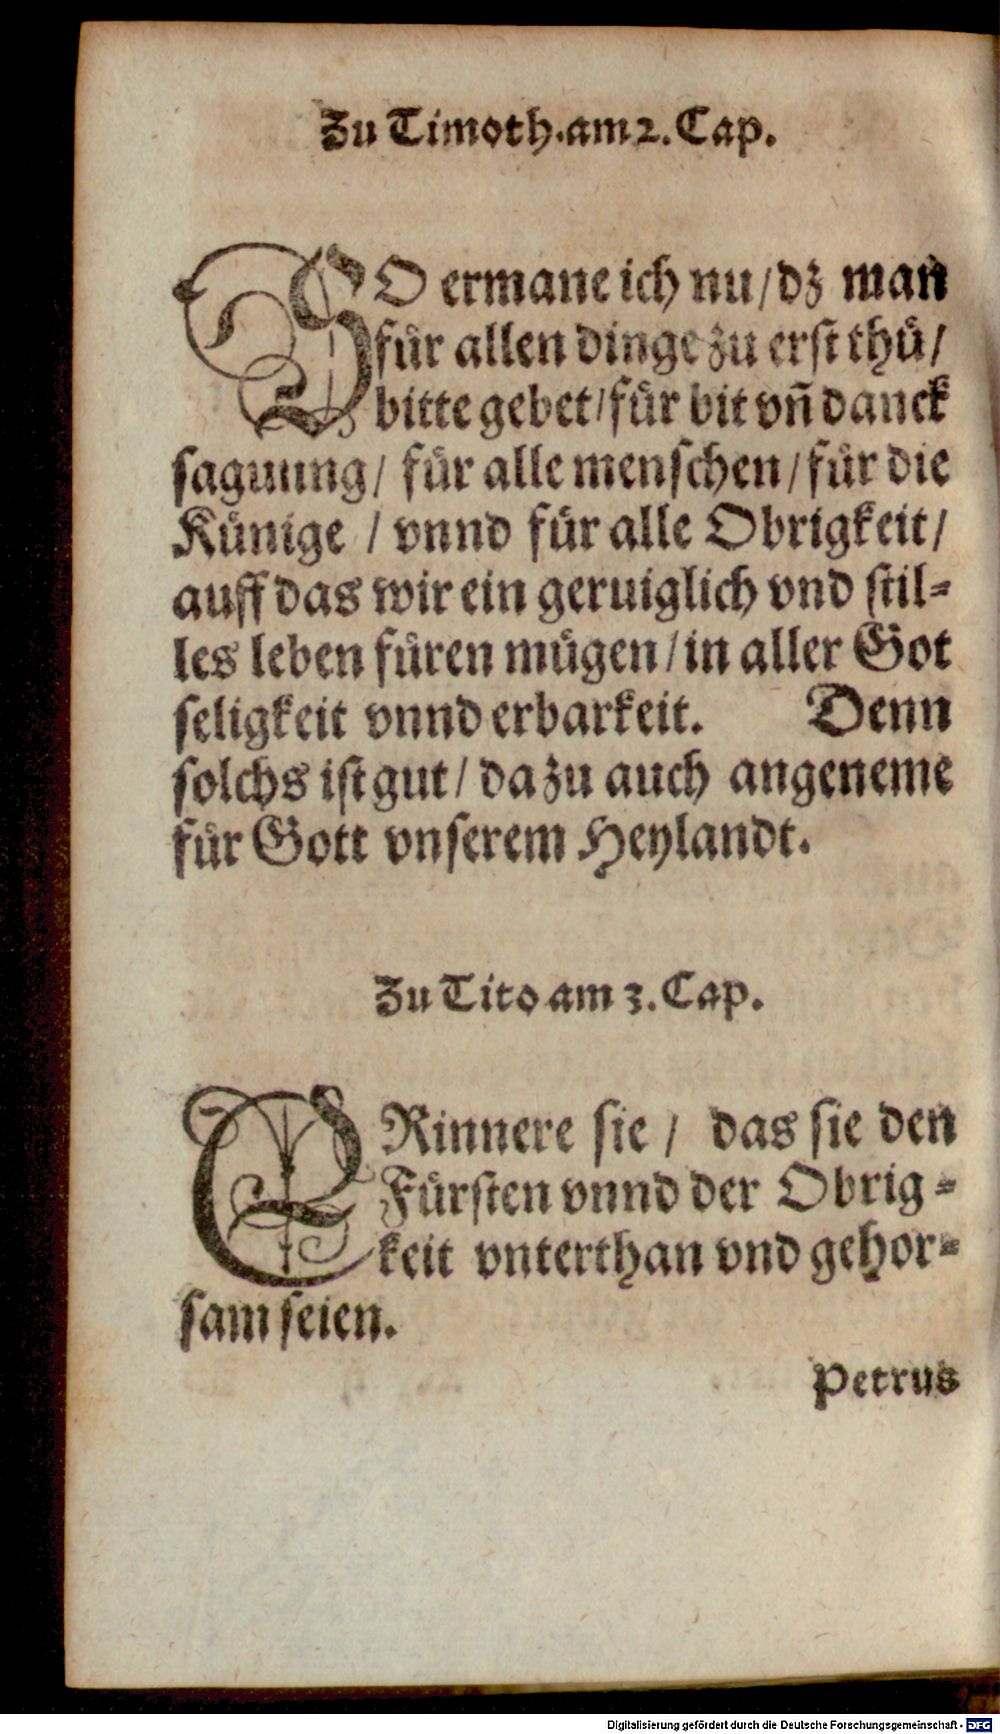 Zu Timoth. am 2. Cap.
SO ermane ich nu / dz man
für allen dinge zu erst thů /
bitte gebet / für bit vñ danck
sagunng / für alle menschen / für die
Künige / vnnd für alle Obrigkeit /
auff das wir ein geruiglich vnd stil-
les leben füren mügen / in aller Got
seligkeit vnnd erbarkeit. Denn
solchs ist gut / da zu auch angeneme
für Gott vnserem Heylandt.
Zu Tito am 3. Cap.
ERinnere sie / das sie den
Fürsten vnnd der Obrig-
keit vnterthan vnd gehor-
sam seien.
Petrus
Digitalisierung gefördert durch die Deutsche Forschungsgemeinschaft - DFG